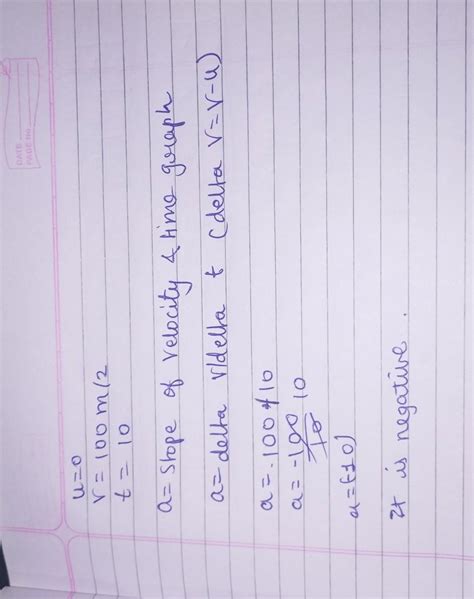 DATE
PAGE NO.
u=0
v = 100 m/2
t = 10
a= Slope of velocity & time graph
a= delta v/delta t (delta v=v-u)
a= -100/10
a= -100 10
10
a=(-10)
It is negative.